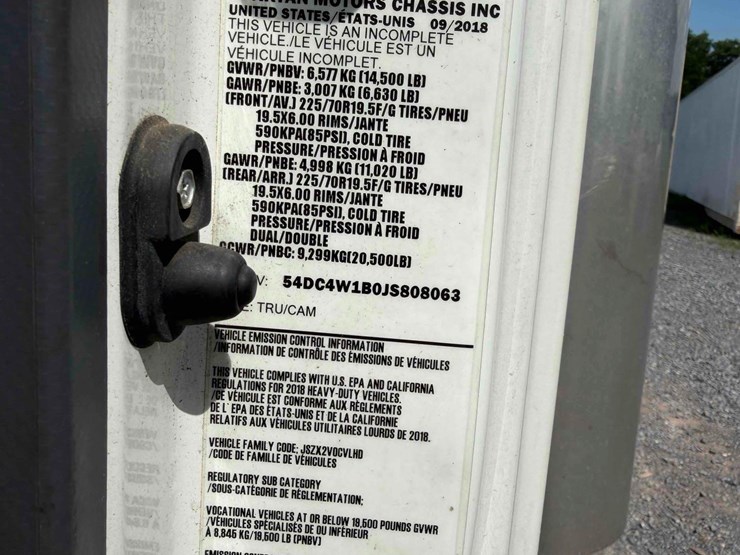 MOTORS CHASSIS INC
UNITED STATES/ÉTATS-UNIS 09/2018
THIS VEHICLE IS AN INCOMPLETE
VEHICLE./LE VÉHICULE EST UN
VÉHICULE INCOMPLET.
GVWR/PNBV: 6,577 KG (14,500 LB)
GAWR/PNBE: 3,007 KG (6,630 LB)
(FRONT/AV.) 225/70R19.5F/G TIRES/PNEU
19.5X6.00 RIMS/JANTE
590KPA(85PSI), COLD TIRE
PRESSURE/PRESSION À FROID
GAWR/PNBE: 4,998 KG (11,020 LB)
(REAR/ARR.) 225/70R19.5F/G TIRES/PNEU
19.5X6.00 RIMS/JANTE
590KPA(85PSI), COLD TIRE
PRESSURE/PRESSION À FROID
DUAL/DOUBLE
GCWR/PNBC: 9,299KG(20,500LB)
V: 54DC4W1B0JS808063
E: TRU/CAM
VEHICLE EMISSION CONTROL INFORMATION
/INFORMATION DE CONTRÔLE DES ÉMISSIONS DE VÉHICULES
THIS VEHICLE COMPLIES WITH U.S. EPA AND CALIFORNIA
REGULATIONS FOR 2018 HEAVY-DUTY VEHICLES.
/CE VÉHICULE EST CONFORME AUX RÈGLEMENTS
DE L' EPA DES ÉTATS-UNIS ET DE LA CALIFORNIE
RELATIFS AUX VÉHICULES UTILITAIRES LOURDS DE 2018.
VEHICLE FAMILY CODE: JSZX2VOCVLHD
/CODE DE FAMILLE DE VÉHICULES
REGULATORY SUB CATEGORY
/SOUS-CATÉGORIE DE RÉGLEMENTATION:
VOCATIONAL VEHICLES AT OR BELOW 19,500 POUNDS GVWR
/VÉHICULES SPÉCIALISÉS DE OU INFÉRIEUR
À 8,845 KG/19,500 LB (PNBV)